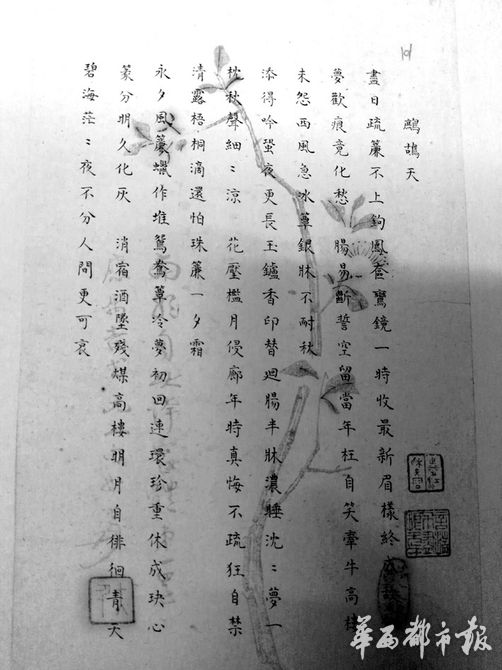 鷓鴣天
盡日疏簾不上鉤鳳奩鸞鏡一時收最新眉樣終
夢歡痕竟化愁 腸易斷誓空留當年枉自笑牽牛高樓
未怨西風急冰簟銀牀不耐秋
添得吟蛩夜更長玉鑪香印替迴腸半牀濃睡沈〻夢一
枕秋聲細〻涼 花壓檻月侵廊年時真悔不疏狂自禁
清露梧桐滴還怕珠簾一夕霜
永夕風簾蠟作堆鴛鴦簟冷夢初回連環珍重休成玦心
篆分明久化灰 消宿酒墜殘煤高樓明月自徘徊青天
碧海茫〻夜不分人間更可哀
華西都市報